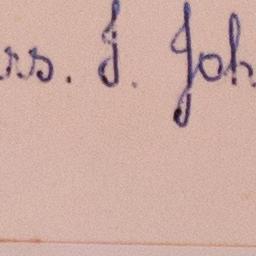 rs. J. Joh